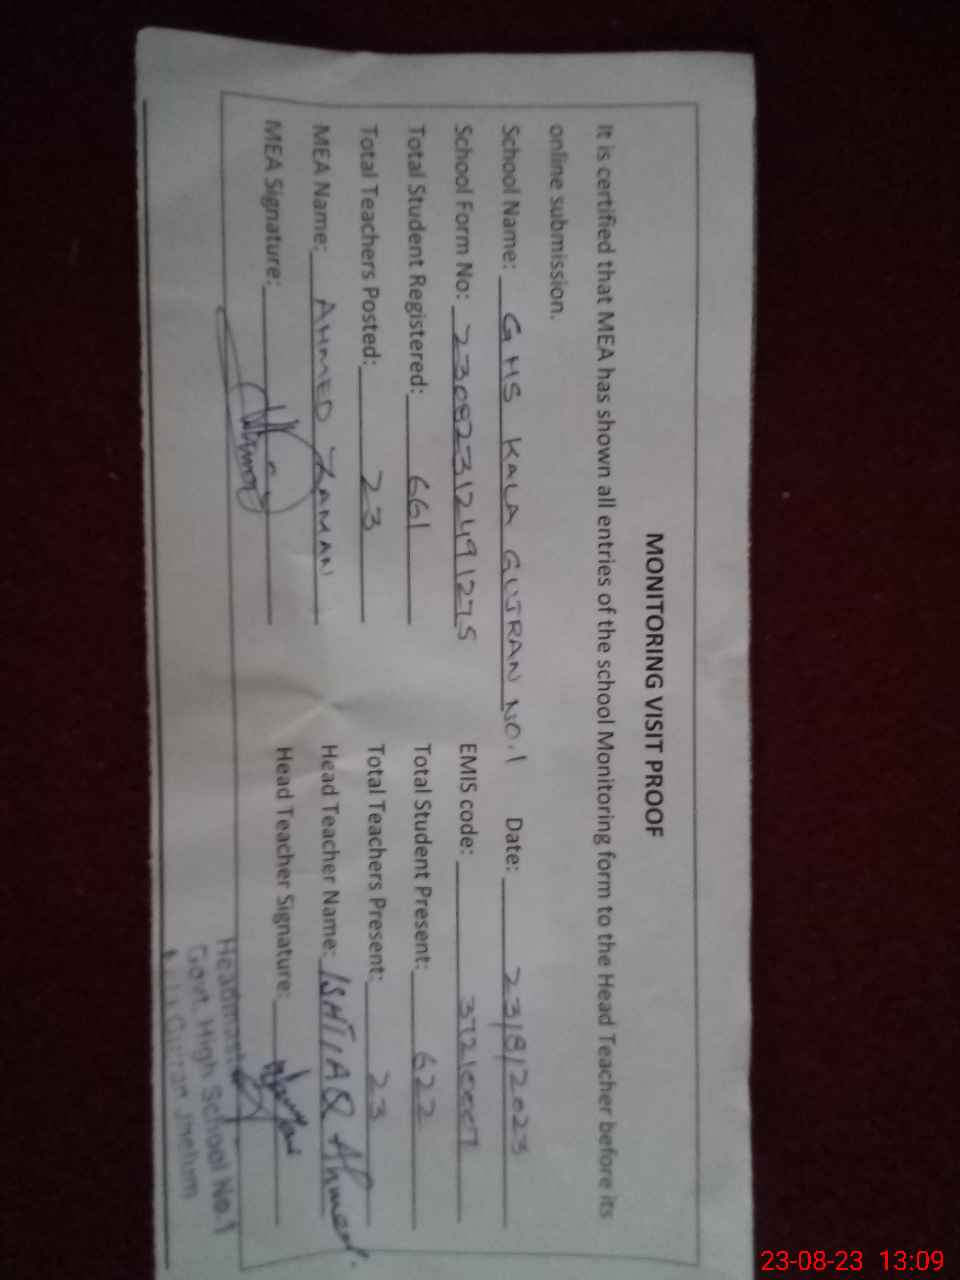 MONITORING VISIT PROOF
It is certified that MEA has shown all entries of the school Monitoring form to the Head Teacher before its
online submission.
School Name: GHS KALA GUJRAN NO.1 Date: 23/8/2023
School Form No: 230823124491275 EMIS code: 37210007
Total Student Registered: 661 Total Student Present: 622
Total Teachers Posted: 23 Total Teachers Present: 23
MEA Name: AHMED ZAMAN Head Teacher Name: ISHTIAQ Ahmed
MEA Signature: Head Teacher Signature:
Headmaster
Govt. High School No.1
Gujran Jhelum
23-08-23 13:09